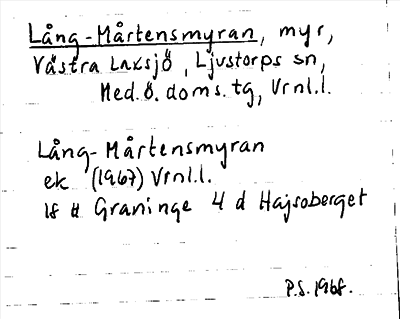 Lång-Mårtensmyran, myr,
Västra Laxsjö, Ljustorps sn,
Med.Ö.doms.tg, Vrnl.l.
Lång-Mårtensmyran
ek (1967) Vrnl.l.
18 H Graninge 4 d Hajsoberget
P.S. 1968.